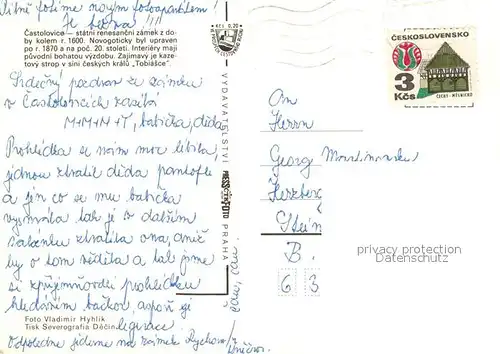 Pilně fotíme novým fotoaparátem!
Je bezva !!!
Častolovice — státní renesanční zámek z do-
by kolem r. 1600. Novogoticky byl upraven
po r. 1870 a na poč. 20. století. Interiéry mají
původní bohatou výzdobu. Zajímavý je kaze-
tový strop v síni českých králů „Tobiášce".
Srdečný pozdrav ze zámku
v Častolovicích zasílá
M+M+M+T, babička, děda
Prohlídka se nám moc líbila,
jednou ztratil děda pantofle
a jen co se mu babička
vysmála tak je v dalším
ztratila ona, aniž
by o tom věděla a tak jsme
si zpříjemnili prohlídku
hledáním bačkor, aspoň je
legrace
Odpoledne jdeme na zámek Rychnov
Foto Vladimír Hyhlík
Tisk Severografia Děčín
VYDAVATELSTVÍ PRESSFOTO PRAHA
KČS 0,20
ČESKOSLOVENSKO
3
Kčs
ČECHY - MĚLNICKO
An
Herrn
Georg
Herzberg
B.
6 3
privacy protection
Datenschutz